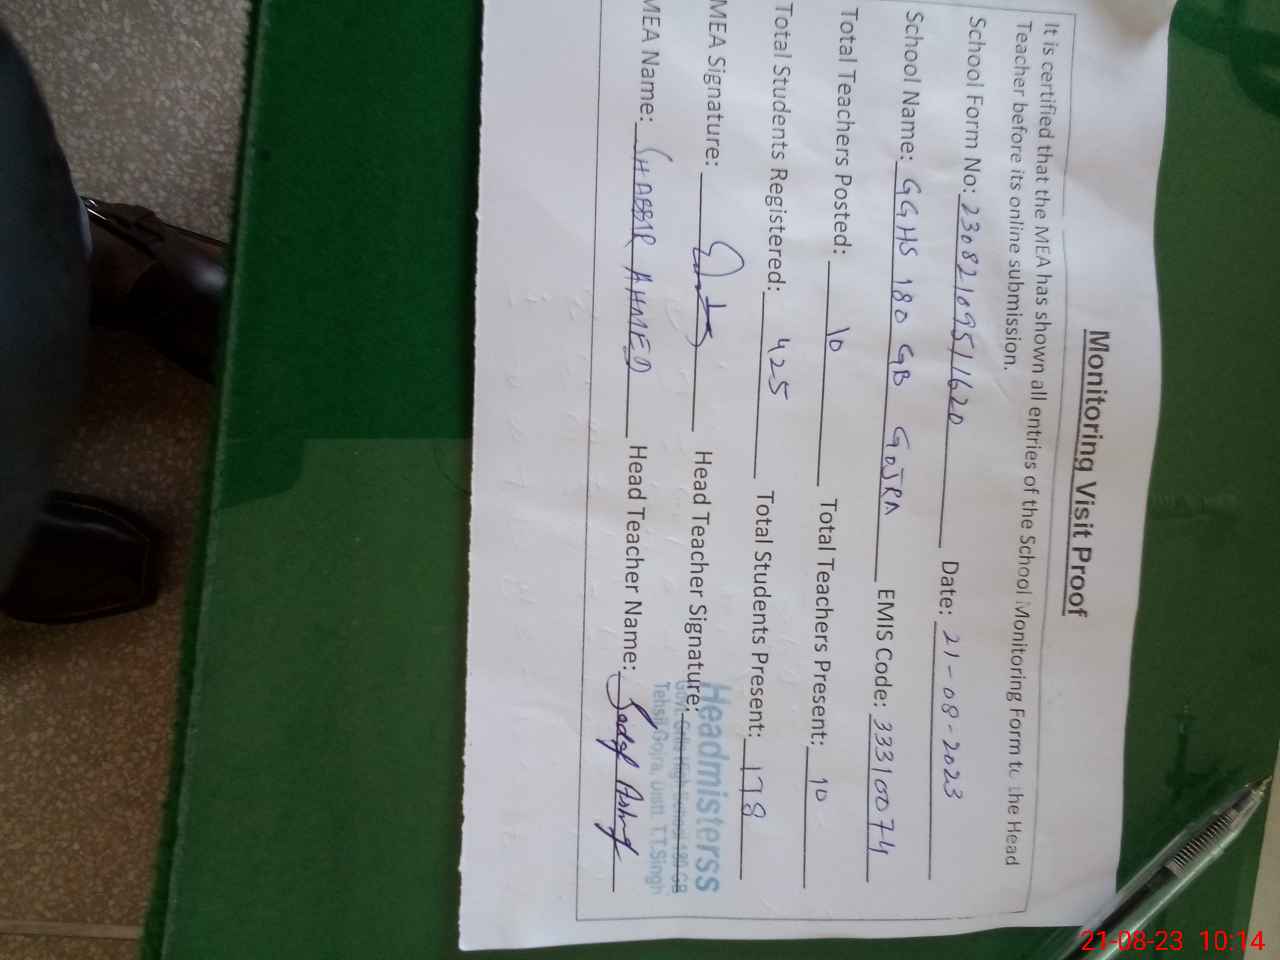 Monitoring Visit Proof
It is certified that the MEA has shown all entries of the School Monitoring Form to the Head
Teacher before its online submission.
School Form No: 23082109511620 Date: 21-08-2023
School Name: GGHS 180 GB GOJRA EMIS Code: 33310074
Total Teachers Posted: 10 Total Teachers Present: 10
Total Students Registered: 425 Total Students Present: 178
MEA Signature: Head Teacher Signature:
Headmisterss
Govt. Girls High School 180 GB
Tehsil Gojra, Distt. T.T.Singh
MEA Name: SHABBIR AHMED Head Teacher Name: Sadaf Ashraf
21-08-23 10:14